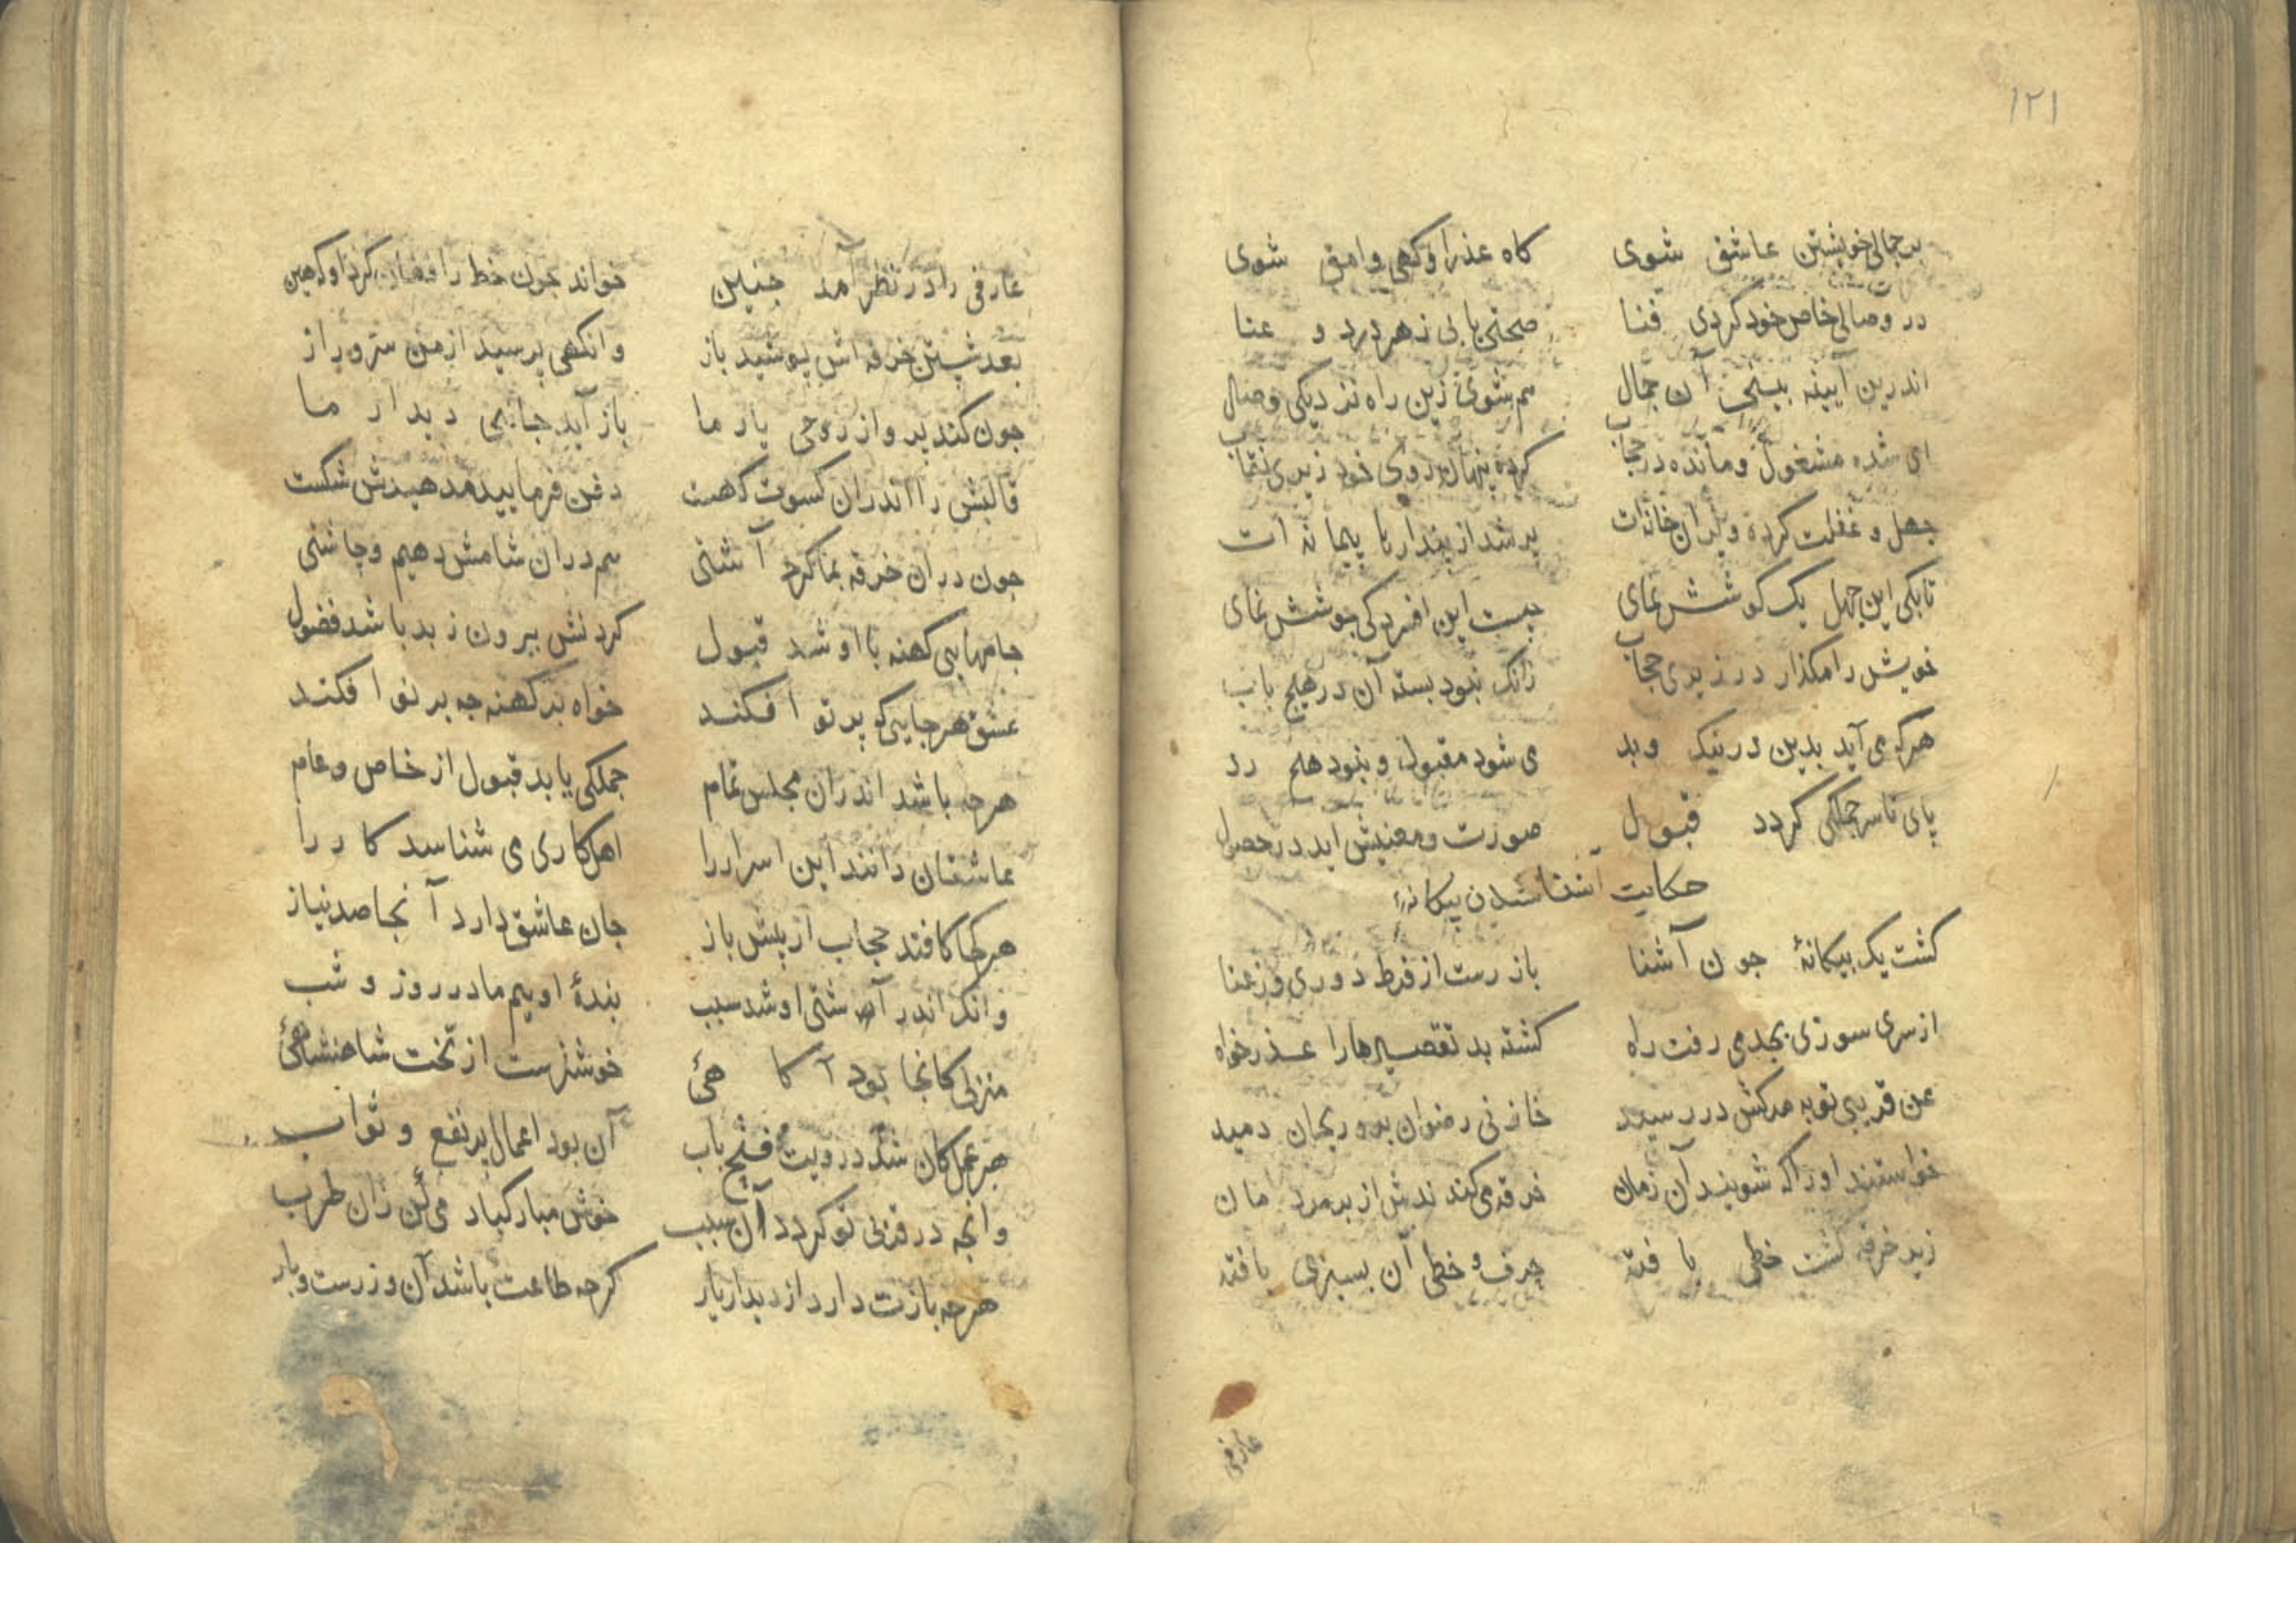 ۱۲۱
بر جمالی خویشتن عاشق شوی کاه عذرا و کهی وامق شوی
در وصالی خاص خود کردی فنا صحتی یابی ز هر درد و عنا
اندرین آیینه بینی آن جمال هم شوی زین راه نزدیکی وصال
ای شده مشغول و مانده در حجاب کرده پنهان روی خود زیری نقاب
جهل و غفلت کرده ویران خانه ات پر شد از پندارها پیمانه ات
تا بکی این جهل یک کوشش نمای چیست این افسردکی جوشش نمای
خویش را مکذار در زیری حجاب زانک نبود بسته آن در هیچ باب
هرک می آید بدین در نیک و بد می شود مقبول و نبود هیچ رد
پای تا سر جملکی کردد قبول صورت و معنیش اید در حصول
حکایت آشنا شدن بیکانهٔ
کشت یک بیکانهٔ جون آشنا باز رست از فرط دوری وز عنا
از سری سوزی بجد می رفت راه کشته بد تقصیرها را عذر خواه
عن قریبی نوبه مرکش در رسید خازنی رضوان بدو ریحان دمید
خواستند او را که شویند آن زمان خرقه می کندندش از بر مردمان
زیر خرقه کشت خطی یافته حرف و خطی آن بسبزی بافته
عارفی
عارفی را در نظر آمد جنین خواند جون خط را فغان کرد او کهین
بعد شستن خرقه اش پوشید باز وانکهی پرسید از من ستر و راز
جون کند پرواز روحی یار ما باز آید جانبی دیدار ما
قالبش را اندران کسوت کهست دفن فرمایید مدهیدش شکست
جون دران خرقه بما کرد آشتی هم دران شامش دهیم و چاشتی
جامهایی کهنه با او شد قبول کردنش بیرون ز بد باشد فضول
عشق هر جایی که پرتو افکند خواه بر کهنه جه بر نو افکند
هرجه باشد اندران مجلس تمام جملکی یابد قبول از خاص و عام
عاشقان دانند این اسرار را اهل کاری می شناسد کار را
هر کجا کافتد حجاب از پیش باز جان عاشق دارد آنجا صد نیاز
وانک اندر آشتی او شد سبب بندهٔ اوییم ما در روز و شب
منزلی کانجا بود آکاهئ خوشترست از تخت شاهنشاهئ
هر عمل کان شد در ویت فتح باب آن بود اعمال پر نفع و ثواب
وانجه در قربی تو کردد آن سبب خوش مبارکباد می کن زان طرب
هرجه بازت دارد از دیدار یار کرجه طاعت باشد آن وزرست و بار